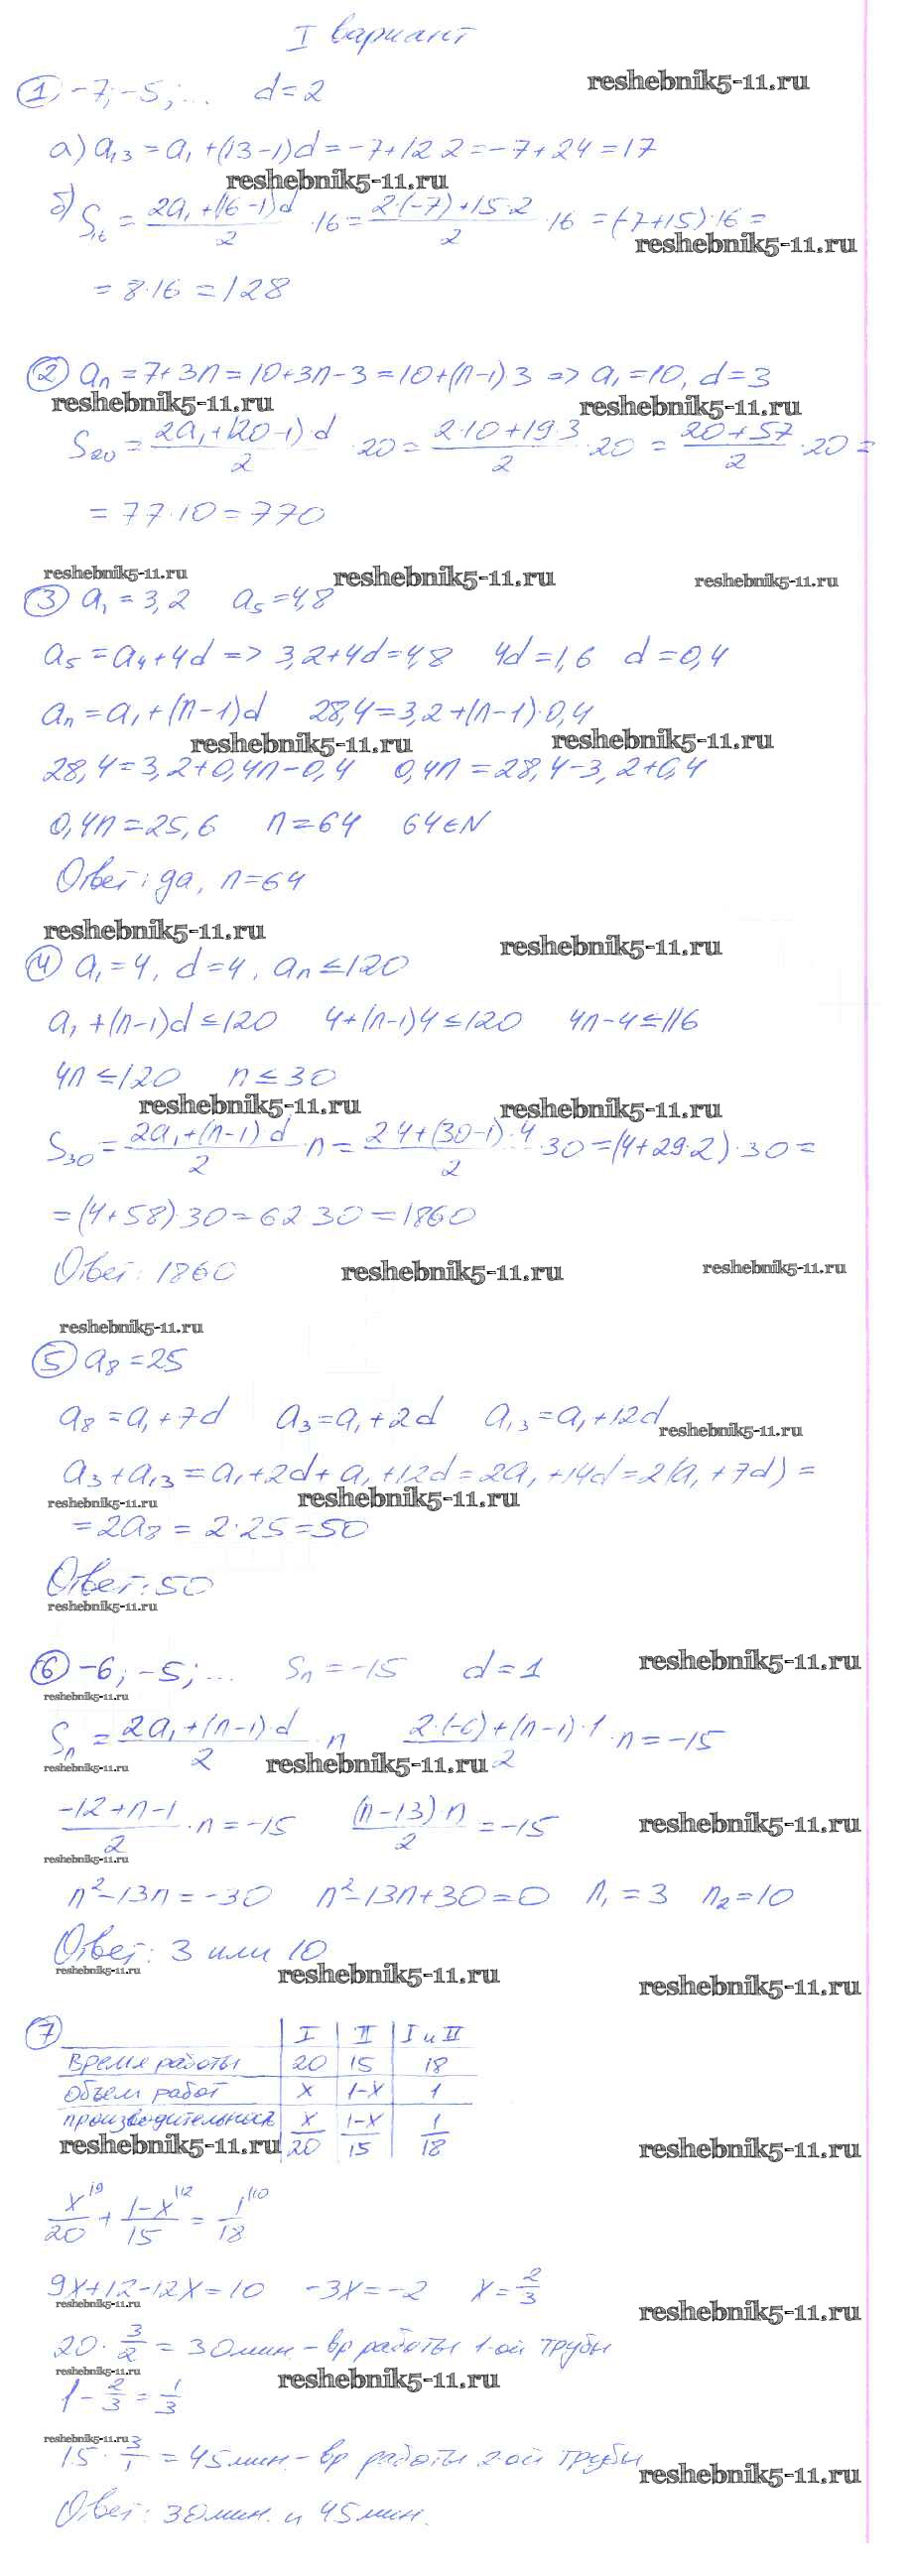 I вариант
① -7; -5; ... d=2
reshebnik5-11.ru
а) a₁₃ = a₁ + (13-1)d = -7+12·2 = -7+24 = 17
reshebnik5-11.ru
б) S₁₆ = (2a₁+(16-1)d)/2 · 16 = (2·(-7)+15·2)/2 · 16 = (-7+15)·16 =
reshebnik5-11.ru
= 8·16 = 128
② aₙ = 7+3n = 10+3n-3 = 10+(n-1)·3 => a₁=10, d=3
reshebnik5-11.ru reshebnik5-11.ru
S₂₀ = (2a₁+(20-1)d)/2 · 20 = (2·10+19·3)/2 · 20 = (20+57)/2 · 20 =
= 77·10 = 770
reshebnik5-11.ru reshebnik5-11.ru reshebnik5-11.ru
③ a₁ = 3,2 a₅ = 4,8
a₅ = a₄+4d => 3,2+4d=4,8 4d=1,6 d=0,4
aₙ = a₁+(n-1)d 28,4=3,2+(n-1)·0,4
reshebnik5-11.ru reshebnik5-11.ru
28,4=3,2+0,4n-0,4 0,4n=28,4-3,2+0,4
0,4n=25,6 n=64 64∈N
Ответ: да, n=64
reshebnik5-11.ru reshebnik5-11.ru
④ a₁=4, d=4, aₙ≤120
a₁+(n-1)d≤120 4+(n-1)4≤120 4n-4≤116
4n≤120 n≤30
reshebnik5-11.ru reshebnik5-11.ru
S₃₀ = (2a₁+(n-1)d)/2 · n = (2·4+(30-1)·4)/2 · 30 = (4+29·2)·30 =
= (4+58)·30 = 62·30 = 1860
Ответ: 1860 reshebnik5-11.ru reshebnik5-11.ru
reshebnik5-11.ru
⑤ a₈ = 25
a₈ = a₁+7d a₃ = a₁+2d a₁₃ = a₁+12d
reshebnik5-11.ru
a₃+a₁₃ = a₁+2d+a₁+12d = 2a₁+14d = 2(a₁+7d) =
reshebnik5-11.ru reshebnik5-11.ru
= 2a₈ = 2·25 = 50
Ответ: 50
reshebnik5-11.ru
⑥ -6; -5; ... Sₙ = -15 d=1 reshebnik5-11.ru
reshebnik5-11.ru
Sₙ = (2a₁+(n-1)·d)/2 · n (2·(-6)+(n-1)·1)/2 · n = -15
reshebnik5-11.ru reshebnik5-11.ru
(-12+n-1)/2 · n = -15 ((n-13)·n)/2 = -15 reshebnik5-11.ru
reshebnik5-11.ru
n²-13n = -30 n²-13n+30=0 n₁=3 n₂=10
Ответ: 3 или 10
reshebnik5-11.ru reshebnik5-11.ru reshebnik5-11.ru
⑦ I II I и II
Время работы 20 15 18
Объем работ x 1-x 1
производительность x/20 (1-x)/15 1/18
reshebnik5-11.ru reshebnik5-11.ru
x/20 |9 + (1-x)/15 |12 = 1/18 |10
9x+12-12x=10 -3x=-2 x=2/3
reshebnik5-11.ru reshebnik5-11.ru
20·3/2 = 30 мин - вр работы 1-ой трубы
reshebnik5-11.ru reshebnik5-11.ru
1-2/3=1/3
reshebnik5-11.ru
15·3/1 = 45 мин - вр работы 2-ой трубы
reshebnik5-11.ru
Ответ: 30 мин. и 45 мин.